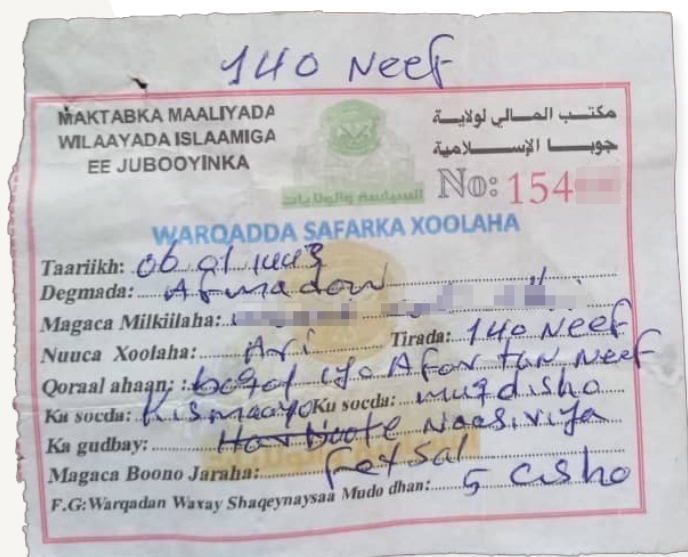 140 Neef
MAKTABKA MAALIYADA
WILAAYADA ISLAAMIGA
EE JUBOOYINKA
مكتب المالي لولاية
جوبا الإسلامية
السياسة والولايات
No: 154
WARQADDA SAFARKA XOOLAHA
Taariikh: 06 01 1443
Degmada: Afmadow
Magaca Milkiilaha:
Nuuca Xoolaha: Ari Tirada: 140 Neef
Qoraal ahaan: : boqol iyo Afar tan Neef
Ka socda: Kismaayo Ku socda: muqdisho
Ka gudbay: Naasiriya
Magaca Boono Jaraha: Feysal
F.G: Warqadan Waxay Shaqeynaysaa Mudo dhan: 5 Cisho